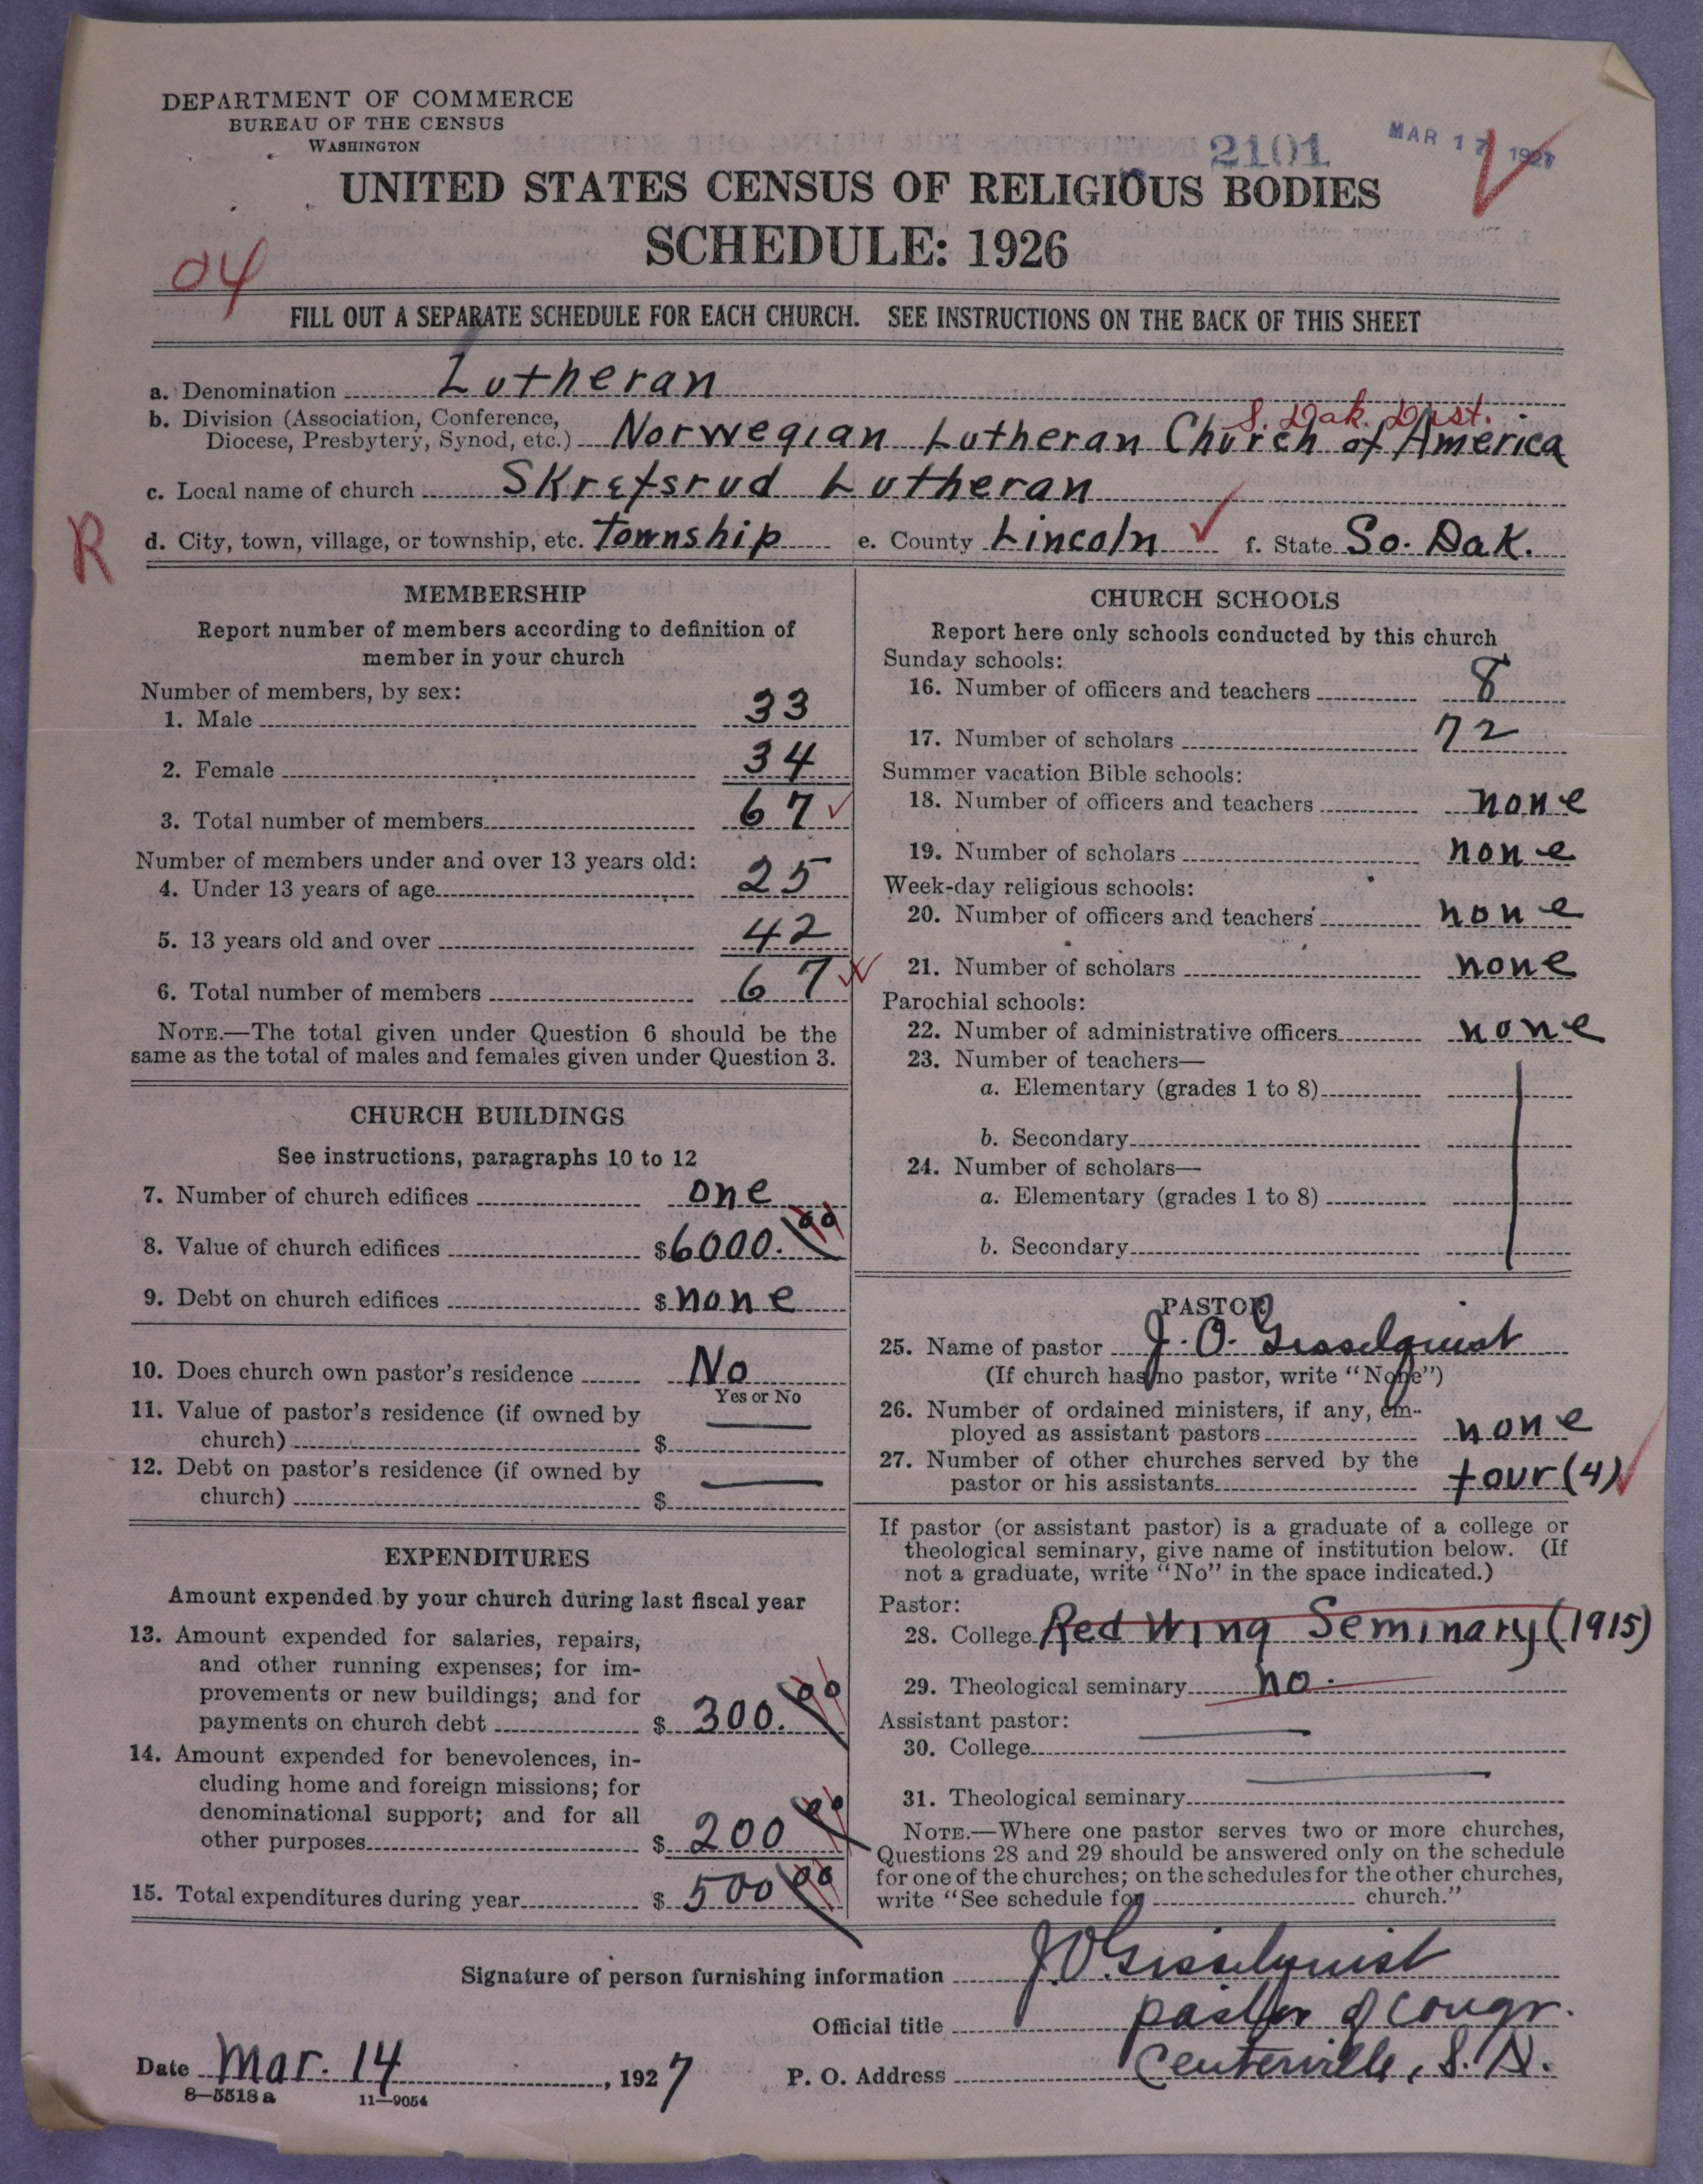 DEPARTMENT OF COMMERCE
BUREAU OF THE CENSUS
WASHINGTON
2101
MAR 17 1927
UNITED STATES CENSUS OF RELIGIOUS BODIES
SCHEDULE: 1926
04
FILL OUT A SEPARATE SCHEDULE FOR EACH CHURCH. SEE INSTRUCTIONS ON THE BACK OF THIS SHEET
a. Denomination Lutheran
S. Dak. Dist.
b. Division (Association, Conference,
Diocese, Presbytery, Synod, etc.) Norwegian Lutheran Church of America
c. Local name of church Skrefsrud Lutheran
R
d. City, town, village, or township, etc. Township e. County Lincoln f. State So. Dak.
MEMBERSHIP
Report number of members according to definition of
member in your church
Number of members, by sex:
1. Male 33
2. Female 34
3. Total number of members 67
Number of members under and over 13 years old:
4. Under 13 years of age 25
5. 13 years old and over 42
6. Total number of members 67
NOTE.—The total given under Question 6 should be the
same as the total of males and females given under Question 3.
CHURCH BUILDINGS
See instructions, paragraphs 10 to 12
7. Number of church edifices one
8. Value of church edifices $6000.00
9. Debt on church edifices $none
10. Does church own pastor's residence No
Yes or No
11. Value of pastor's residence (if owned by
church) $ —
12. Debt on pastor's residence (if owned by
church) $ —
EXPENDITURES
Amount expended by your church during last fiscal year
13. Amount expended for salaries, repairs,
and other running expenses; for im-
provements or new buildings; and for
payments on church debt $ 300.00
14. Amount expended for benevolences, in-
cluding home and foreign missions; for
denominational support; and for all
other purposes $ 200 00
15. Total expenditures during year $ 500 00
CHURCH SCHOOLS
Report here only schools conducted by this church
Sunday schools:
16. Number of officers and teachers 8
17. Number of scholars 72
Summer vacation Bible schools:
18. Number of officers and teachers none
19. Number of scholars none
Week-day religious schools:
20. Number of officers and teachers none
21. Number of scholars none
Parochial schools:
22. Number of administrative officers none
23. Number of teachers—
a. Elementary (grades 1 to 8)
b. Secondary
24. Number of scholars—
a. Elementary (grades 1 to 8)
b. Secondary
PASTOR
25. Name of pastor J. O. Gisselquist
(If church has no pastor, write "None")
26. Number of ordained ministers, if any, em-
ployed as assistant pastors none
27. Number of other churches served by the
pastor or his assistants four (4)
If pastor (or assistant pastor) is a graduate of a college or
theological seminary, give name of institution below. (If
not a graduate, write "No" in the space indicated.)
Pastor:
28. College Red Wing Seminary (1915)
29. Theological seminary no.
Assistant pastor:
30. College —
31. Theological seminary —
NOTE.—Where one pastor serves two or more churches,
Questions 28 and 29 should be answered only on the schedule
for one of the churches; on the schedules for the other churches,
write "See schedule for church."
Signature of person furnishing information J.O. Gisselquist
Official title pastor of congr.
Date Mar. 14, 1927 P. O. Address Centerville, S. D.
8—5518 a 11—9054